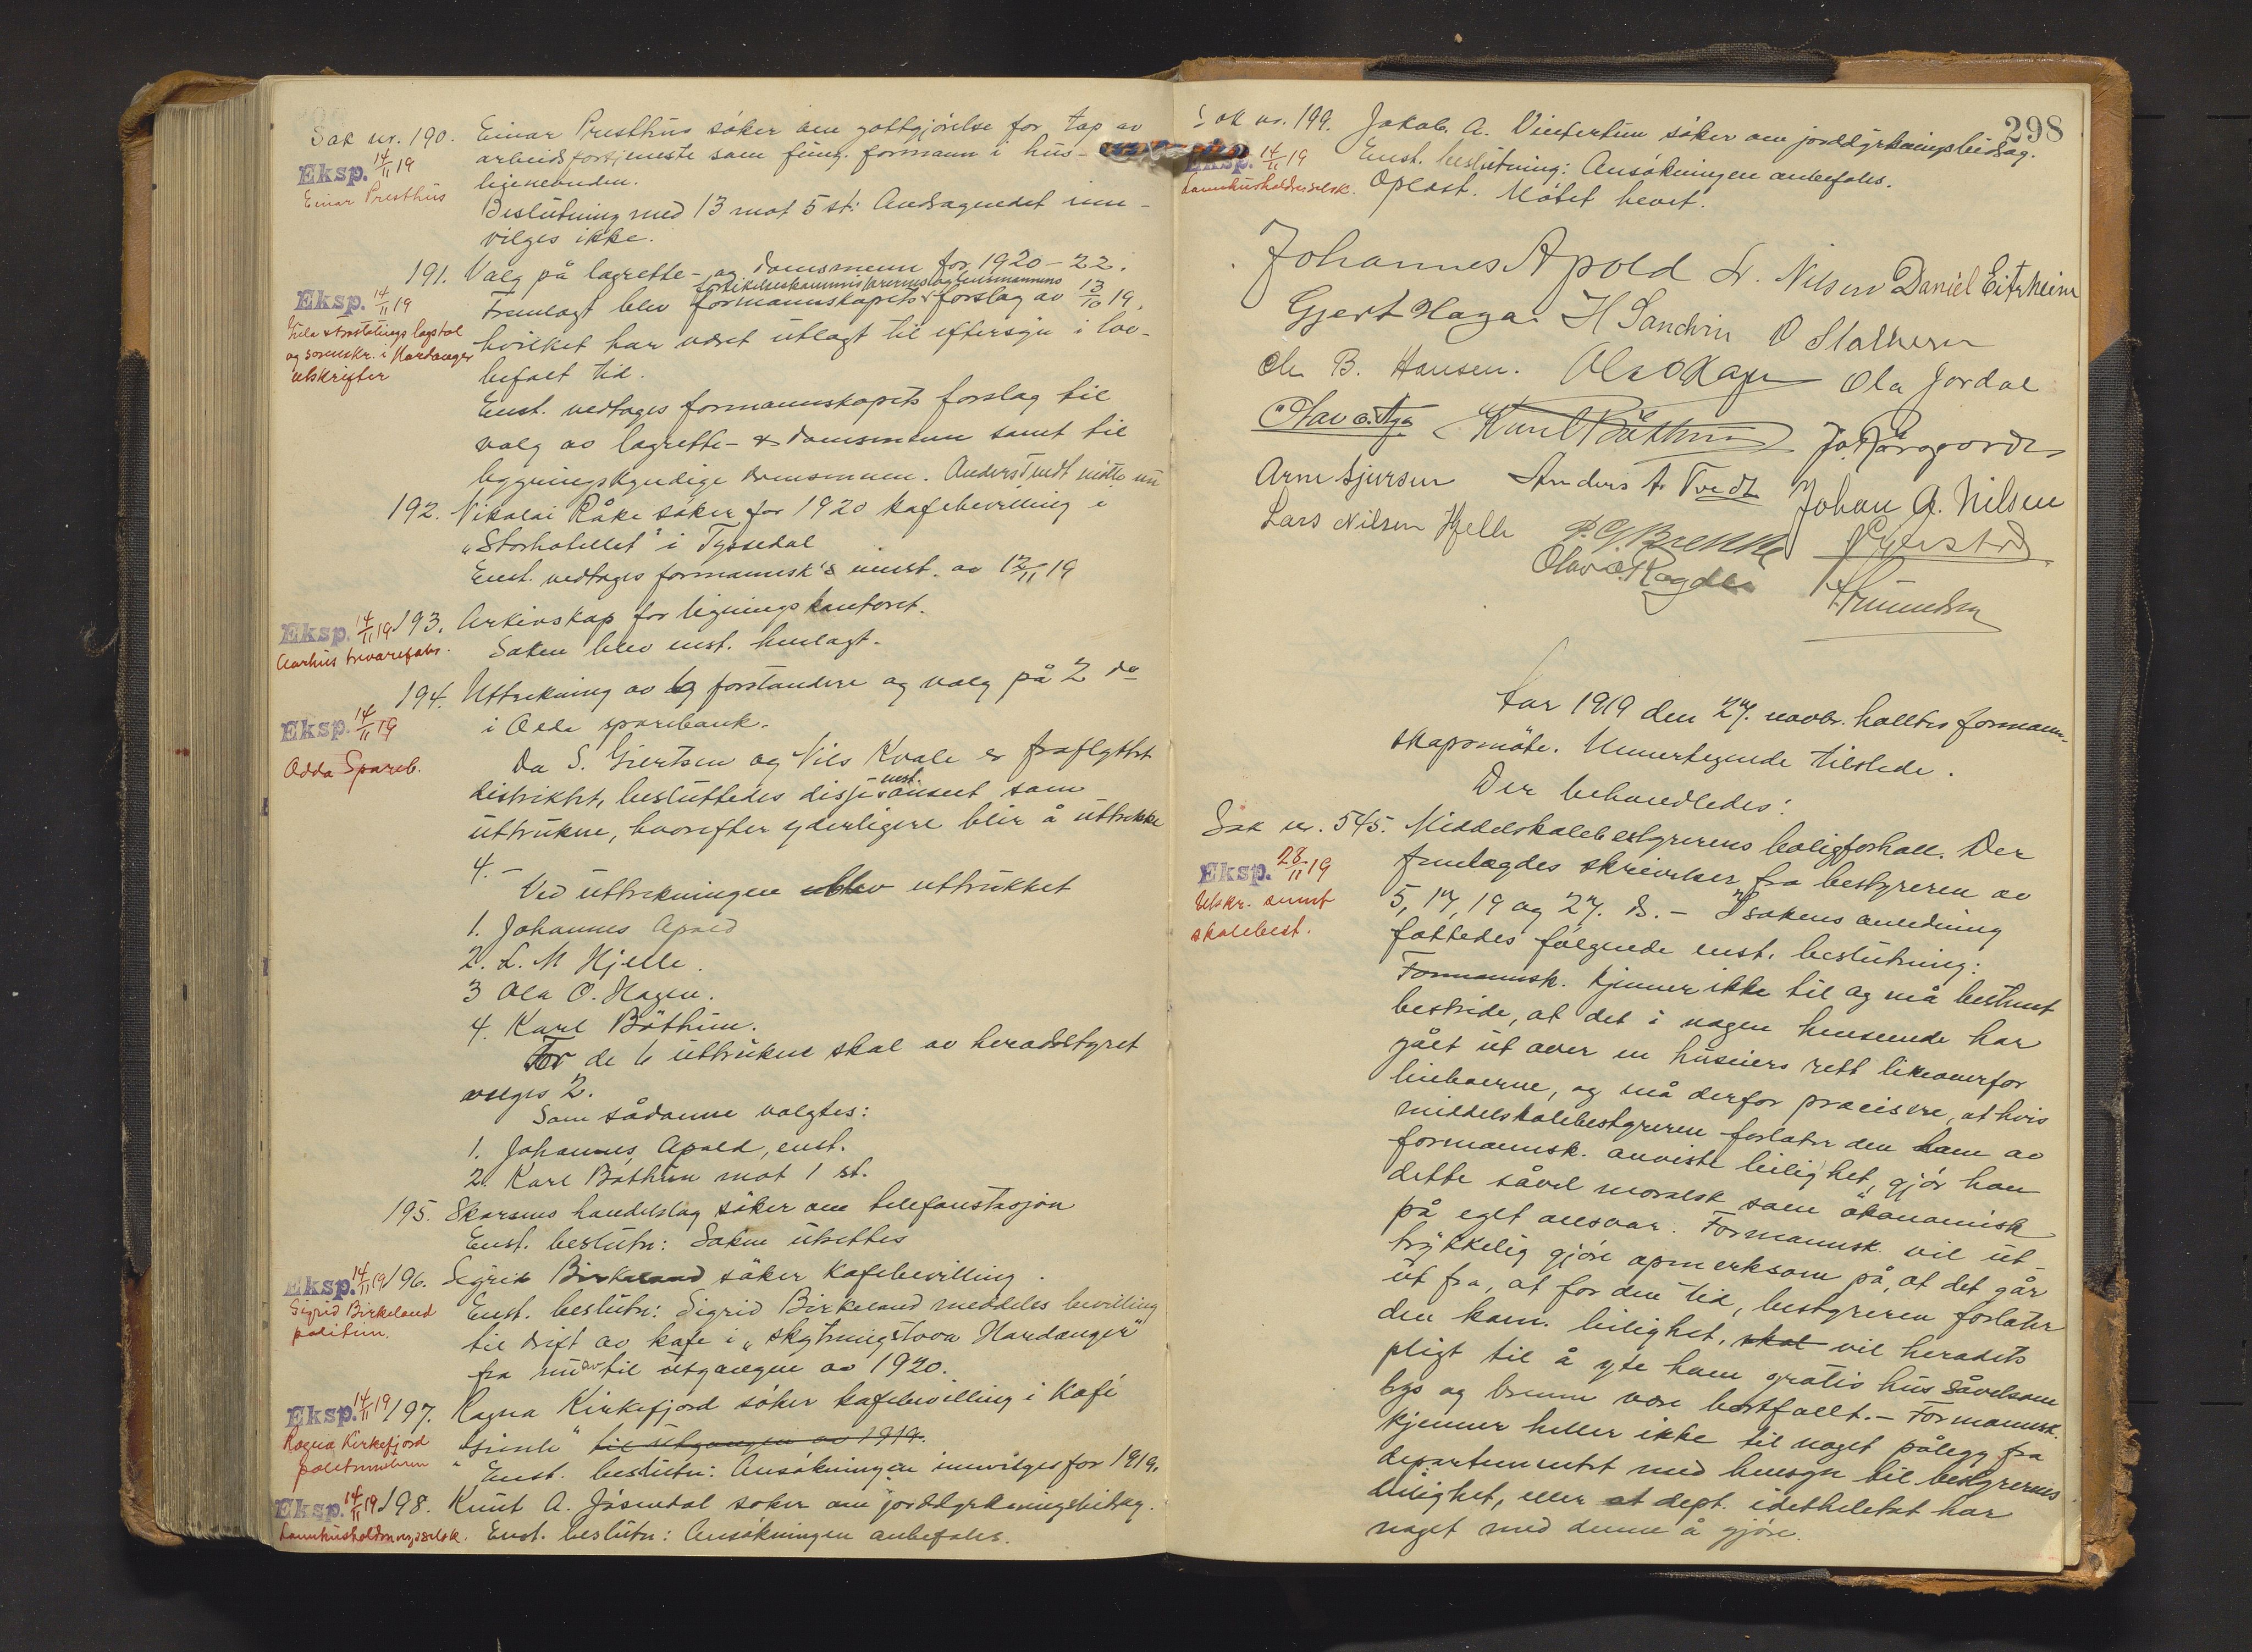 Sak nr. 190. Einar Presthus söker om gottgjörelse for tap av
Eksp. 14/11 19
Einar Presthus
arbeidsfortjeneste som fung. formann i hus-
leienevnden.
Beslutning med 13 mot 5 st: Andragendet inn-
vilges ikke.
191. Valg på lagrette- og domsmenn for 1920-22.
Eksp. 14/11 19
og sorenskr. i Hardanger
utskrifter
Fremlagt blev formannskapets forslag av 13/10 19,
hvilket har været utlagt til eftersyn i lov-
befalt tid.
Enst. vedtages formannskapets forslag til
valg av lagrette- & domsmenn samt til
bygningskyndige domsmenn. Anders Tvedt mötte nu
192. Nikolai Råke söker for 1920 kafebevilling i
"Storhotellet" i Tyssedal
Enst. vedtages formannsk's innst. av 12/11 19
Eksp. 14/11 19 193. Arkivskap for ligningskontoret.
Aarhus trevarefabr.
Saken blev enst. henlagt.
194. Uttrekning av 6 forstandere og valg på 2 do
Eksp. 14/11 19
Odda Spareb.
i Odda sparebank.
Da S. Giertsen og Nils Kvale er fraflyttet
enst.
distriktet, besluttedes disse anseet som
uttrukne, hvorefter yderligere blir å uttrekke
4. -
Ved uttrekningen blev uttrukket
1. Johannes Apold
2. L. N Hjelle.
3 Ola O. Hagen.
4. Karl Böthun.
For de 6 uttrukne skal av heradsstyret
velges 2.
Som sådanne valgtes:
1. Johannes Apold, enst.
2. Karl Böthun mot 1 st.
195. Skarsmo handelslag söker om telefonstasjon
Enst. beslutn: Saken utsettes
Eksp. 14/11 19 196. Sigrid Birkeland söker kafebevilling.
Sigrid Birkeland
politim.
Enst. beslutn: Sigrid Birkeland meddeles bevilling
til drift av kafe i "Skytningstova Hardanger"
fra nu av til utgangen av 1920.
Eksp. 14/11 19 197. Ragna Kirkefjord söker kafebevilling i Kafé
Ragna Kirkefjord
politimesteren
til utgangen av 1919.
Enst. beslutn: Ansökningen innvilges for 1919.
Eksp. 14/11 19 198. Knut A. Jösendal söker om jorddyrkningsbidrag.
Landhusholdningsselsk. Enst. beslutn: Ansökningen anbefales.
298
Sak nr. 199. Jakob A. Vintertun söker om jorddyrkningsbidrag.
Eksp. 14/11 19
Landhusholdn.selsk.
Enst. beslutning: Ansökningen anbefales.
Oplæst. Mötet hevet.
Johannes Apold L. Nilsen Daniel Eitrheim
Gjert Haga H Sandvin O Stalheim
Chr B. Hansen. Ola O Hagen Ola Jordal
Olav O. Aga Karl Böthun
Arne Sjursen Anders A. Tvedt Johan A. Nilsen
Lars Nilsen Hjelle P. G. Brekke
Olav O. Ragde
Aar 1919 den 27. novbr. holltes formann-
skapsmöte. Unnertegnede tilstede.
Der behandledes:
Sak nr. 545. Middelskolebestyrerens boligforhold. Der
Eksp. 28/11 19
Utskr. sendt
skolebest.
fremlagdes skrivelser fra bestyreren av
5, 17, 19 og 27. ds. - I sakens anledning
fattedes fölgende enst. beslutning:
Formannsk. kjenner ikke til og må bestemt
bestride, at det i nogen henseende har
gået ut over en huseiers rett likeoverfor
leieboerne, og må derfor precisere, at hvis
middelskolebestyreren forlater den ham av
formannsk. anviste leilighet, gjör han
dette såvel moralsk som ökonomisk
på eget ansvar. Formannsk. vil ut-
trykkelig gjöre opmerksom på, at det går
ut fra, at for den tid, bestyreren forlater
den kom. leilighet, skal vil heradets
pligt til å yte ham gratis hus såvelsom
lys og brenne være bortfallt. - Formannsk.
kjenner heller ikke til noget pålegg fra
departementet med hensyn til bestyrerens
leilighet, eller at dept. idetheletat har
noget med denne å gjöre.